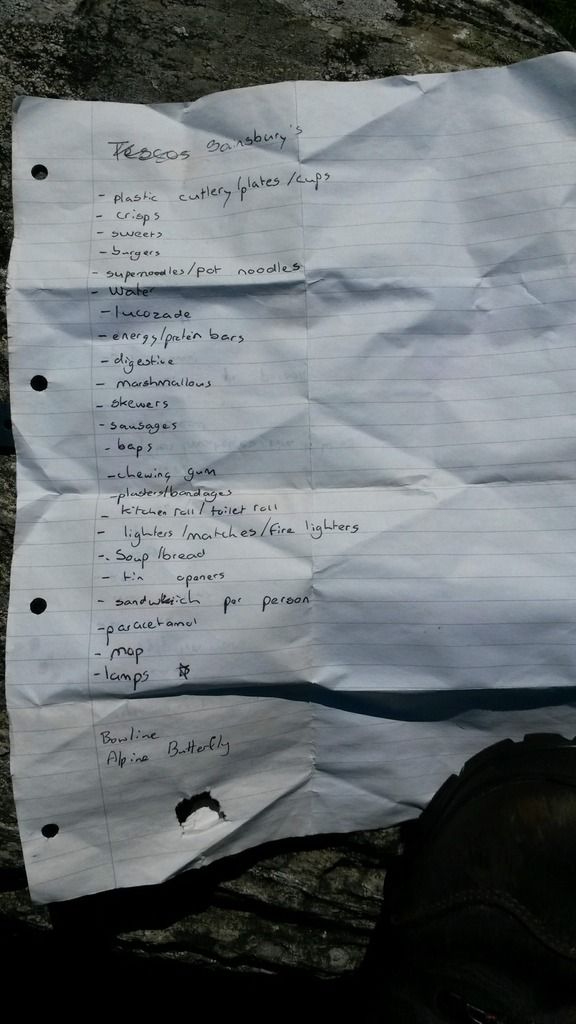 Tescos Sainsbury's
- plastic cutlery/plates/cups
- crisps
- sweets
- burgers
- supernoodles/pot noodles
- Water
- lucozade
- energy/protein bars
- digestive
- marshmallows
- skewers
- sausages
- baps
- chewing gum
- plasters/bandages
- kitchen roll/toilet roll
- lighters/matches/fire lighters
- Soup/bread
- tin openers
- sandwich per person
- paracetamol
- map
- lamps
Bowline
Alpine Butterfly